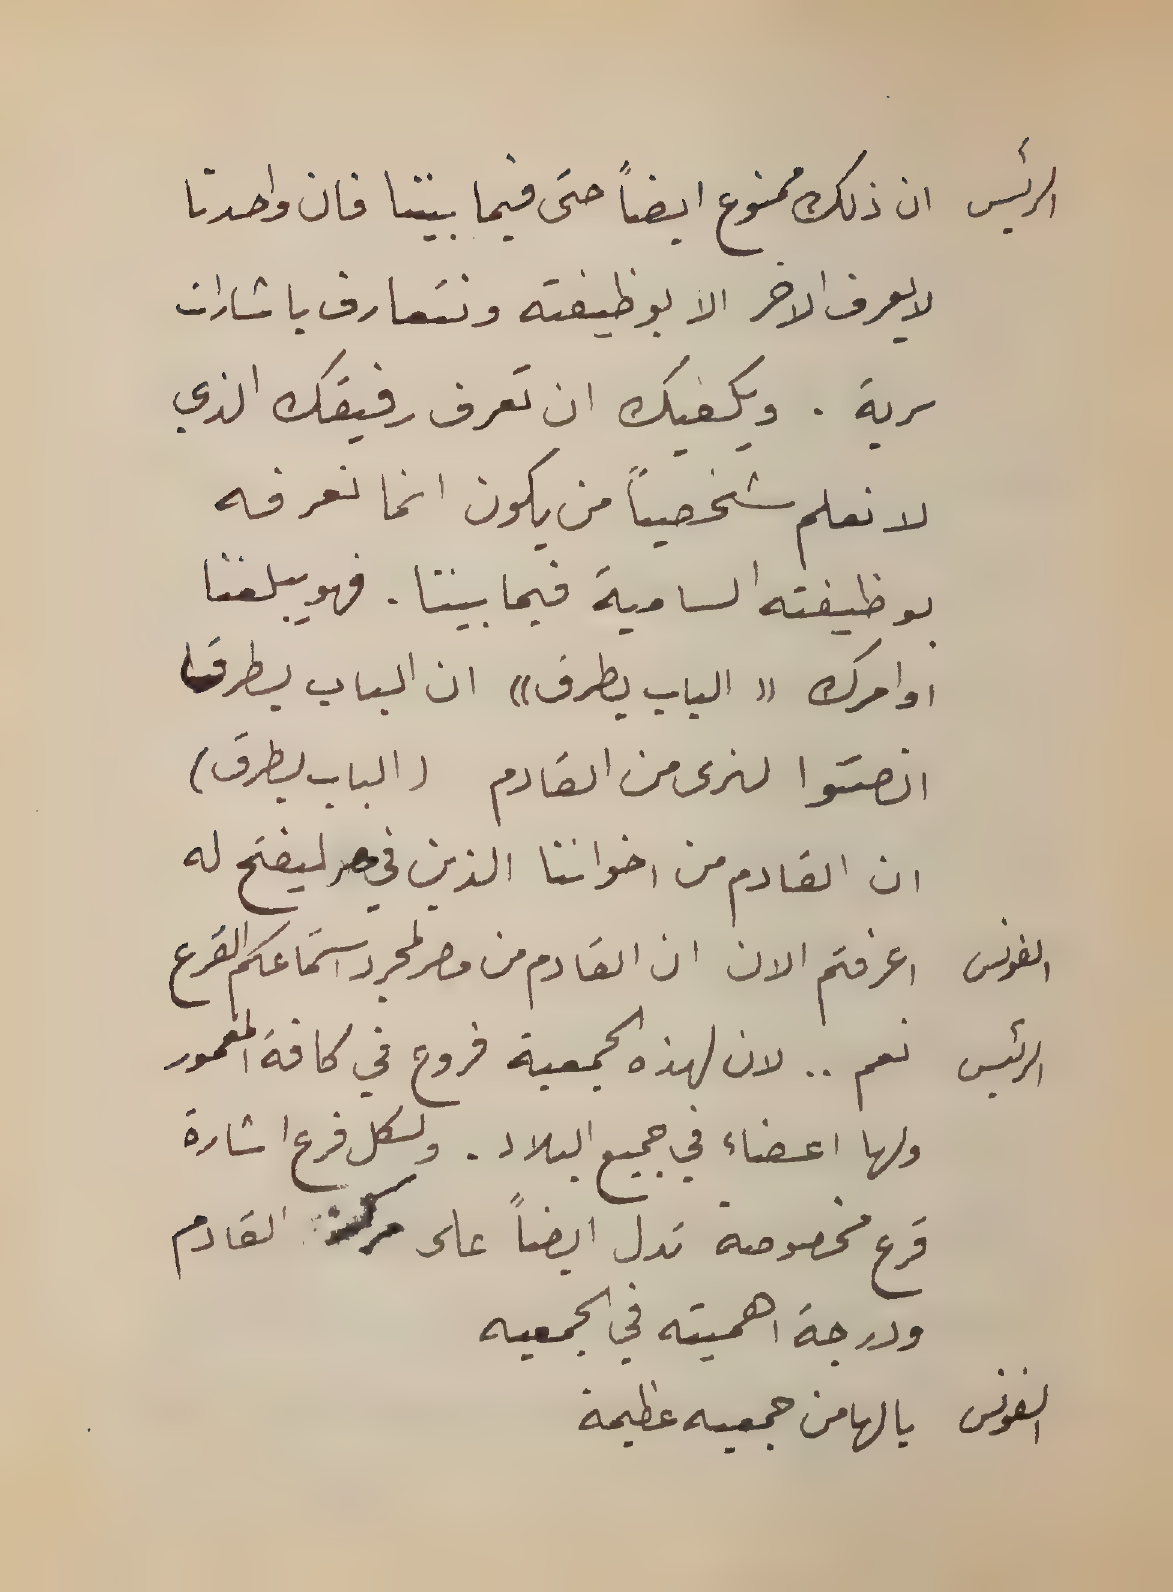 الرئيس ان ذلك ممنوع ايضاً حتى فيما بيننا فان واحدنا
لا يعرف الاخر الا بوظيفته ونتعارف باشارات
سرية . ويكفيك ان تعرف رفيقك الذي
لا نعلم شخصياً من يكون انما نعرفه
بوظيفته السامية فيما بيننا . فهو يبلغنا
اوامرك « الباب يطرق » ان الباب يطرق
انصتوا لنرى من القادم ( الباب يطرق )
ان القادم من اخواننا الذين في مصر ليفتح له
الفونس اعرفتم الان ان القادم من مصر لمجرد استماعكم القرع
الرئيس نعم .. لان لهذه الجمعية فروع في كافة المعمور
ولها اعضاء في جميع البلاد . ولكل فرع اشارة
قرع مخصوصة تدل ايضاً على مركز القادم
ودرجة اهميته في الجمعيه
الفونس يالها من جمعيه عظيمة